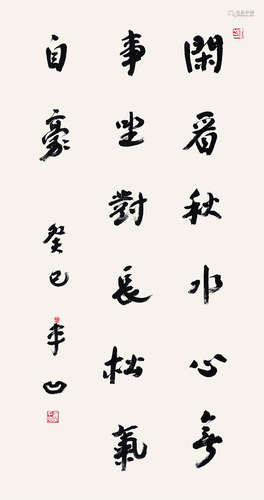 閑看秋水心無
事坐對長松氣
自豪
癸巳 半凹